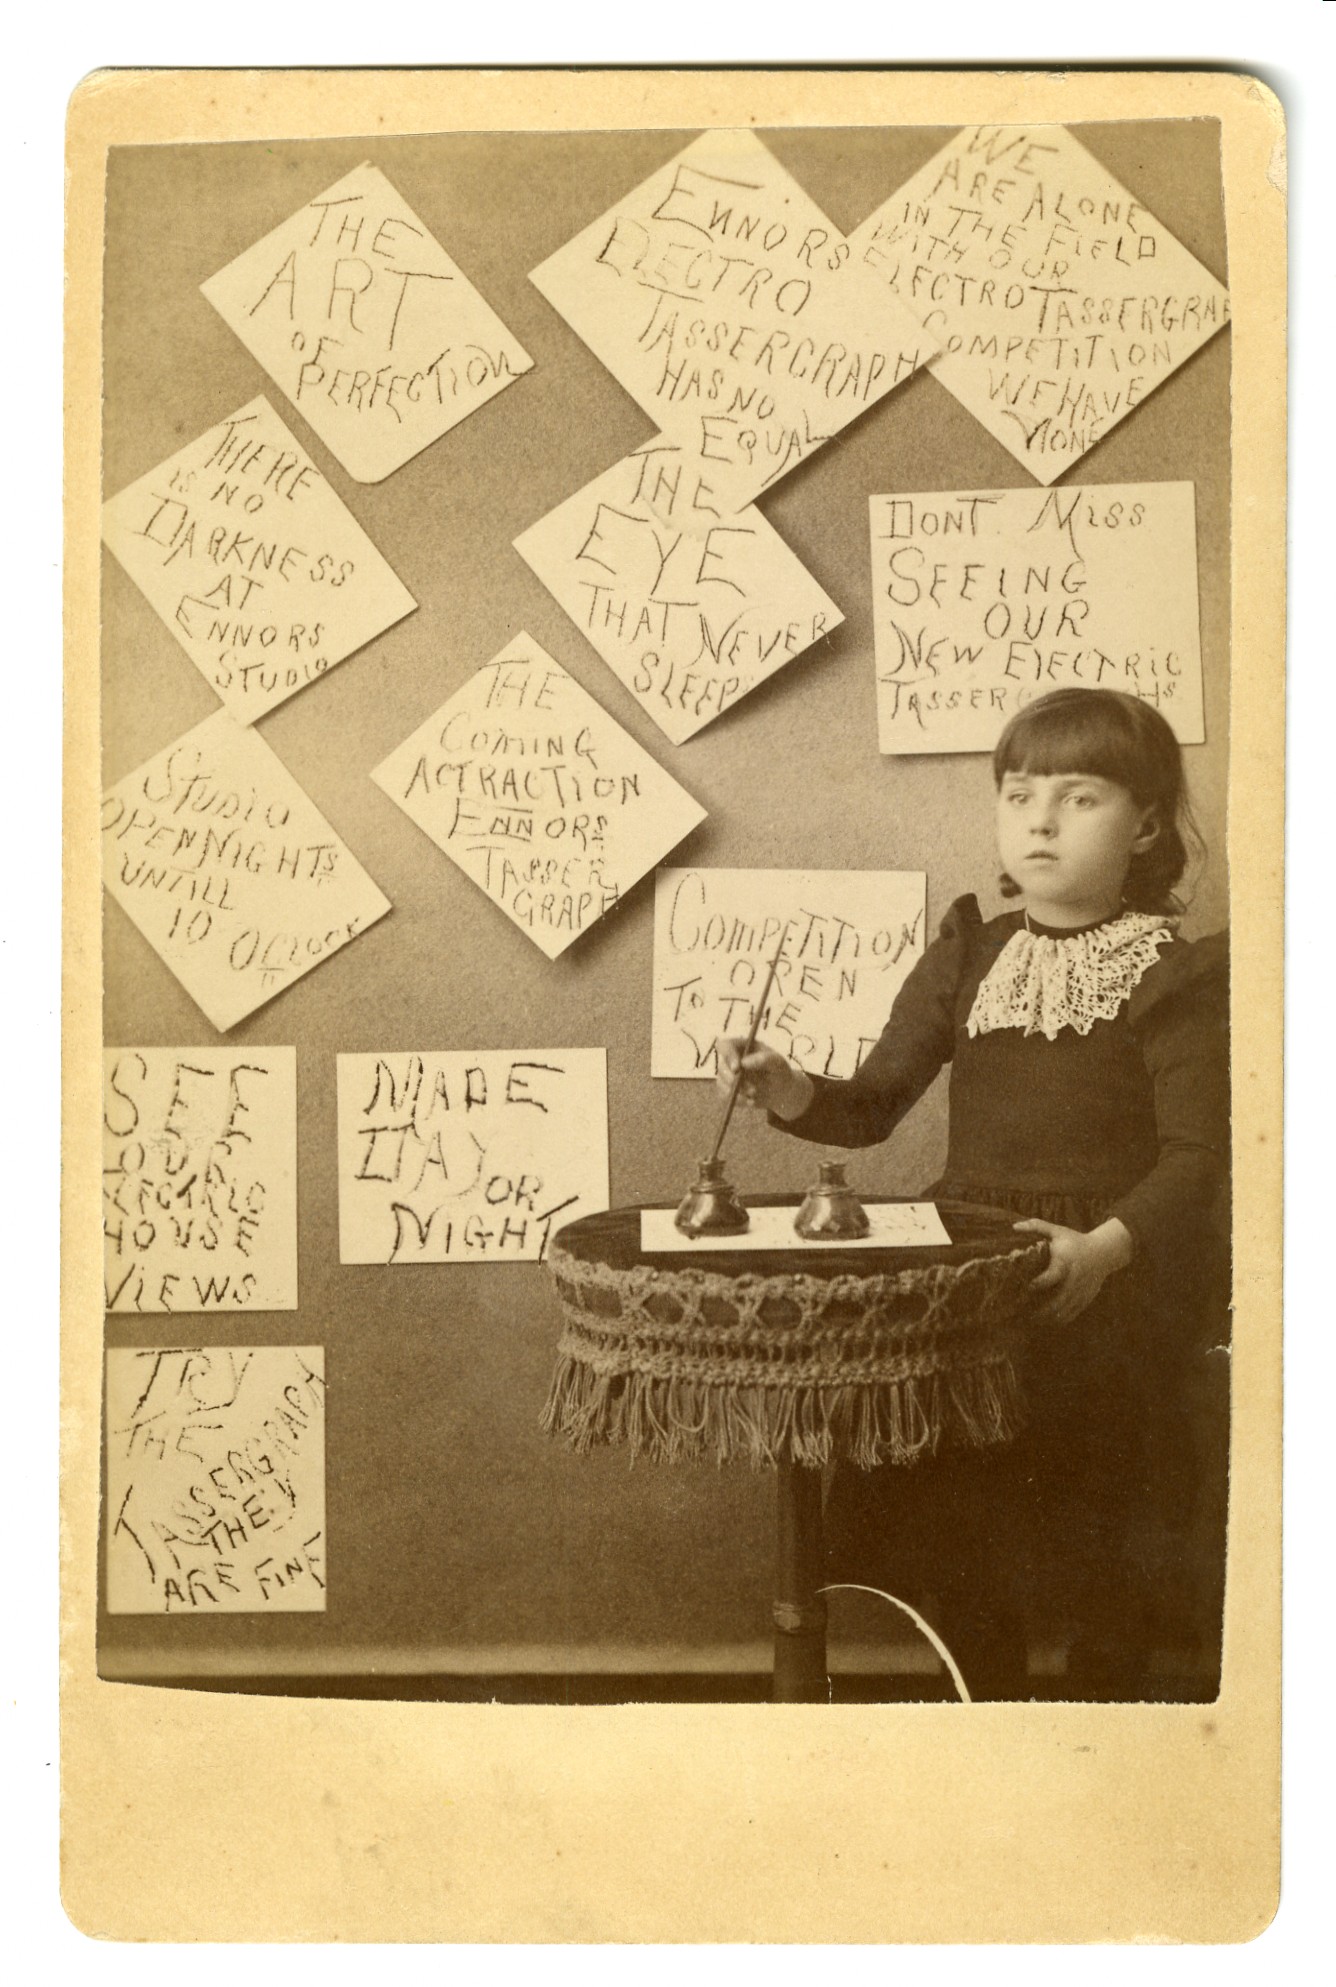 THE
ART
OF
PERFECTION
ENNORS
ELECTRO
TASSERGRAPH
HAS NO
EQUAL
WE
ARE ALONE
IN THE FIELD
WITH OUR
ELECTRO TASSERGRAP
COMPETITION
WE HAVE
NONE
THERE
IS NO
DARKNESS
AT
ENNORS
STUDIO
THE
EYE
THAT NEVER
SLEEPS
DONT. MISS
SEEING
OUR
NEW ELECTRIC
TASSERG HS
STUDIO
OPEN NIGHTS
UNTILL
10 OCLOCK
THE
COMING
ACTRACTION
ENNORS
TASSER
GRAPH
COMPETITION
OPEN
TO THE
WORLD
SEE
OUR
LECTRIC
HOUSE
VIEWS
MADE
DAY
OR
NIGHT
TRY
THE
TASSERGRAPH
THEY
ARE FINE